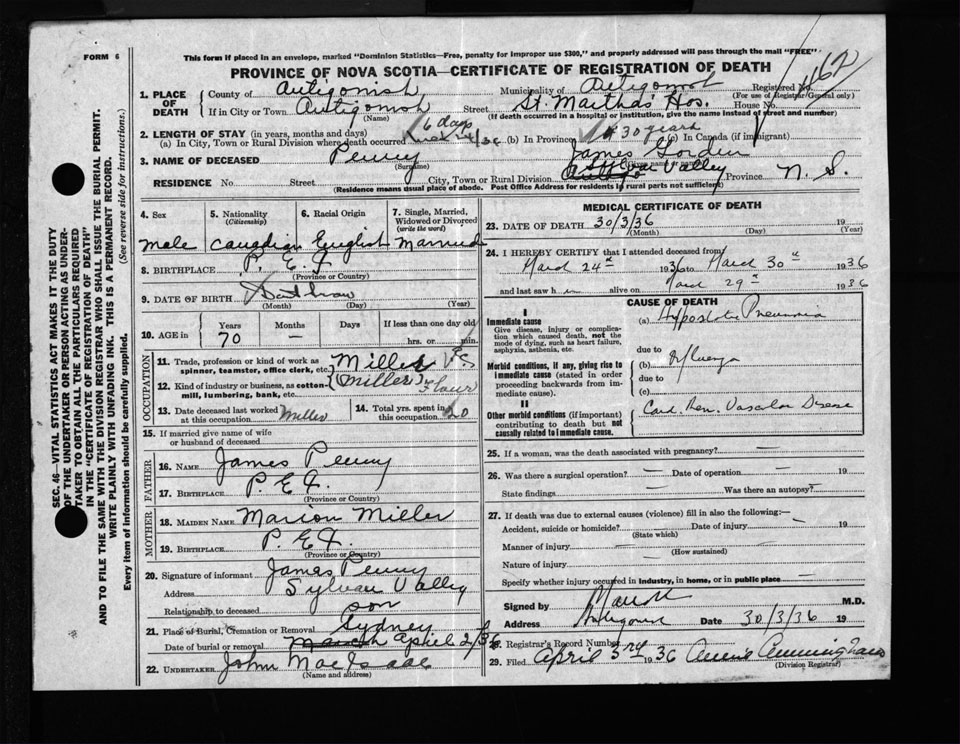 FORM 6
This form if placed in an envelope, marked "Dominion Statistics—Free, penalty for improper use $300," and properly addressed will pass through the mail "FREE"
PROVINCE OF NOVA SCOTIA—CERTIFICATE OF REGISTRATION OF DEATH
62
SEC. 46—VITAL STATISTICS ACT MAKES IT THE DUTY
OF THE UNDERTAKER OR PERSON ACTING AS UNDER-
TAKER TO OBTAIN ALL THE PARTICULARS REQUIRED
IN THE "CERTIFICATE OF REGISTRATION OF DEATH"
AND TO FILE THE SAME WITH THE DIVISION REGISTRAR WHO SHALL ISSUE THE BURIAL PERMIT.
WRITE PLAINLY WITH UNFADING INK. THIS IS A PERMANENT RECORD.
Every item of information should be carefully supplied. (See reverse side for instructions.)
1. PLACE OF DEATH
County of Antigonish Municipality of Antigonish Registered No.
(For use of Registrar General only)
If in City or Town Antigonish Street St. Martha's Hos. House No.
(Name) (If death occurred in a hospital or institution, give the name instead of street and number)
2. LENGTH OF STAY (in years, months and days)
(a) In City, Town or Rural Division where death occurred 6 days (b) In Province 30 years (c) In Canada (if immigrant)
3. NAME OF DECEASED Penny James Gordon
(Surname)
RESIDENCE No. Street City, Town or Rural Division Sylvan Valley Province N. S.
(Residence means usual place of abode. Post Office Address for residents in rural parts not sufficient)
4. Sex
male
5. Nationality
(Citizenship)
Canadian
6. Racial Origin
English
7. Single, Married, Widowed or Divorced
(write the word)
Married
8. BIRTHPLACE P. E. I.
(Province or Country)
9. DATE OF BIRTH
(Month) (Day) (Year)
10. AGE in
Years Months Days If less than one day old
70 — hrs. or min.
OCCUPATION
11. Trade, profession or kind of work as spinner, teamster, office clerk, etc. Miller
12. Kind of industry or business, as cotton-mill, lumbering, bank, etc. (Miller) Flour
13. Date deceased last worked at this occupation Miller
14. Total yrs. spent in this occupation 20
15. If married give name of wife or husband of deceased
FATHER
16. NAME James Penny
17. BIRTHPLACE P. E. I.
(Province or Country)
MOTHER
18. MAIDEN NAME Marion Miller
19. BIRTHPLACE P. E. I.
(Province or Country)
20. Signature of informant James Penny
Address Sylvan Valley
Relationship to deceased son
21. Place of Burial, Cremation or Removal Sydney
Date of burial or removal March April 2/36
22. UNDERTAKER John MacIsaac
(Name and address)
MEDICAL CERTIFICATE OF DEATH
23. DATE OF DEATH 30/3/36 19
(Month) (Day) (Year)
24. I HEREBY CERTIFY that I attended deceased from
March 24th 1936 to March 30th 1936
and last saw him alive on March 29th 1936
CAUSE OF DEATH
I
Immediate cause
Give disease, injury or complication which caused death, not the mode of dying, such as heart failure, asphyxia, asthenia, etc.
(a) Hypostatic Pneumonia
due to
Morbid conditions, if any, giving rise to immediate cause (stated in order proceeding backwards from immediate cause).
(b) Influenza
due to
(c)
II
Other morbid conditions (if important) contributing to death but not causally related to immediate cause.
Card. Ren. Vascular Disease
25. If a woman, was the death associated with pregnancy? —
26. Was there a surgical operation? — Date of operation — 19
State findings Was there an autopsy?
27. If death was due to external causes (violence) fill in also the following:—
Accident, suicide or homicide? Date of injury 19
(State which)
Manner of injury
(How sustained)
Nature of injury
Specify whether injury occurred in industry, in home, or in public place —
Signed by M.D.
Address Antigonish Date 30/3/36 19
28. Registrar's Record Number
29. Filed April 3rd 1936 Annie Cunningham
(Division Registrar)